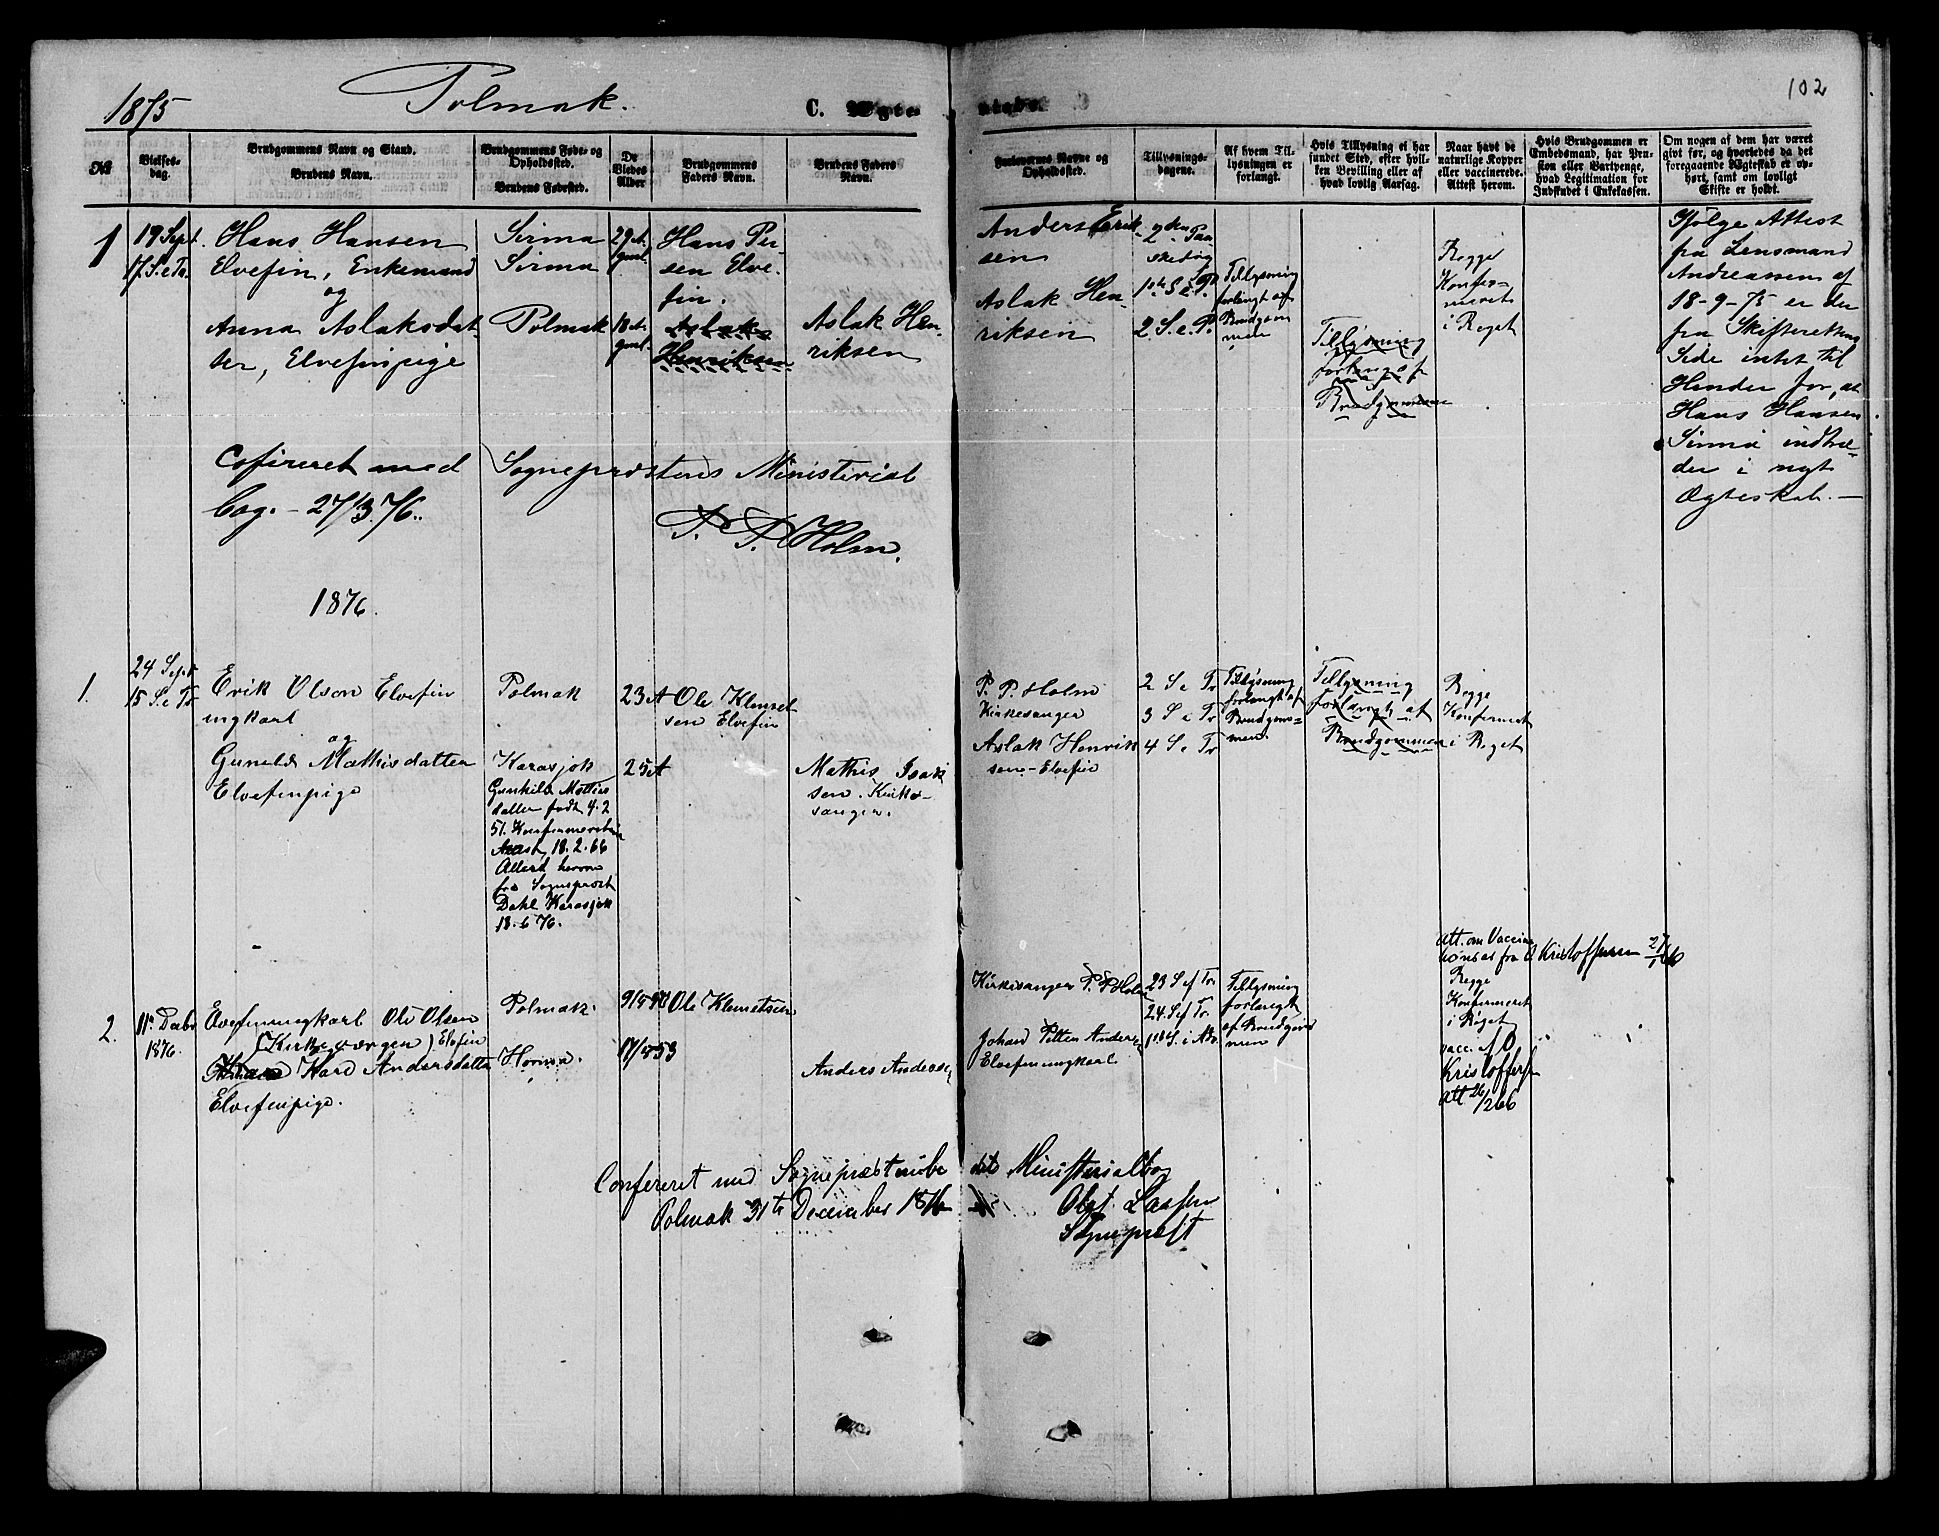 1875 Polmak. C. Ægte- skabs. 102
No
Vielses-
dag.
Brudgommens Navn og Stand.
Brudens Navn.
Brudgommens Føde- og
Opholdssted.
Brudens Fødested.
De
Viedes
Alder
Brudgommens
Faders Navn.
Brudens Faders
Navn.
Forlovernes Navne og
Opholdssted.
Tillysnings-
dagene.
Af hvem Til-
lysningen er
forlangt.
Hvis Tillysning ei har
fundet Sted, efter hvil-
ken Bevilling eller af
hvad lovlig Aarsag.
Naar havt de
naturlige Kopper
eller vaccinerede.
Attest herom.
Hvis Brudgommen er
Embedsmand, har Pen-
sion eller Vartpenge,
hvad Legitimation for
Indskudet i Enkekassen.
Om nogen af dem har været
gift før, og hvorledes da det
foregaaende Ægteskab er op-
hørt, samt om lovligt
Skifte er holdt.
1
19 Sept.
17 S. e Tr.
Hans Hansen
Elvefin, Enkemand
og
Anna Aslaksdat-
ter, Elvefinpige
Sirma
Sirma
Polmak
29 A.
gml.
18 A.
gml.
Hans Per-
sen Elve-
fin.
Aslak
Henriksen
Aslak Hen-
riksen
Anders Erik-
sen
Aslak Hen-
riksen
2den Paa-
skedag
1ste S. e. P.
2. S. e. P.
Tillysning
forlangt af
Brudgom
men
Tillysning
forlangt af
Brudgommen
Begge
Konfir-
meret
i Riget
Ifølge Attest
fra Lensmand
Andreassen af
18-9-75 er der
fra Skifterettens
Side intet til
Hinder for, at
Hans Hansen
Sirma indtræ-
der i nyt
Ægteskab. —
Cofireret med Sognepræstens Ministerial
bog. - 27/3.76.
P. P. Holm.
1876.
1.
24 Sept
15 S. e Tr
Erik Olson Elvefin
ungkarl
og
Gunild Mathisdatter
Elvefinpige
Polmak
Karasjok
Gunhild Mathis
datter født 4.2
51. Konfirmeret
18.2.66
Attest herom
fra Sognepræst
Dahl Karasjok
18-6 76.
23 A
25 A
Ole Klemet
sen Elvefin
Mathis Isak
sen. Kirke-
sanger.
P. P. Holm
Kirkesanger
Aslak Henrik
sen - Elvefin
2 S e Tr
3 S e Tr
4 S e Tr
Tillysning
forlangt af
Brudgom-
men.
Tillysning
forlangt af
Brudgommen
Begge
Konfirmeret
i Riget
2.
11te Debr
1876.
Elvefinungkarl Ole Olsen
(Kirkeværgen) Elvefin
Kare Andersdatter
Elvefinpige.
Polmak.
Horma.
9/8 50
17/8 53
Ole Klemetsen
Anders Andersen
Kirkesanger P. P Holm
Johan Petter Anders
Elvefinungkarl
23 S ef Tr.
24. S ef Tr.
1ste S. i Adv.
Tillysning
forlangt
af Brudgom
men
Att. om Vaccine
fra O Kristoffersen 27/1 66
Begge
Konfirmeret
i Riget
vacc. af O
Kristoffersen
Att 26/2 66
Confereret med Sognepræstembe dets Ministerialbog
Polmak 31te December 1876
Olgt. Lassen
Sognepræst